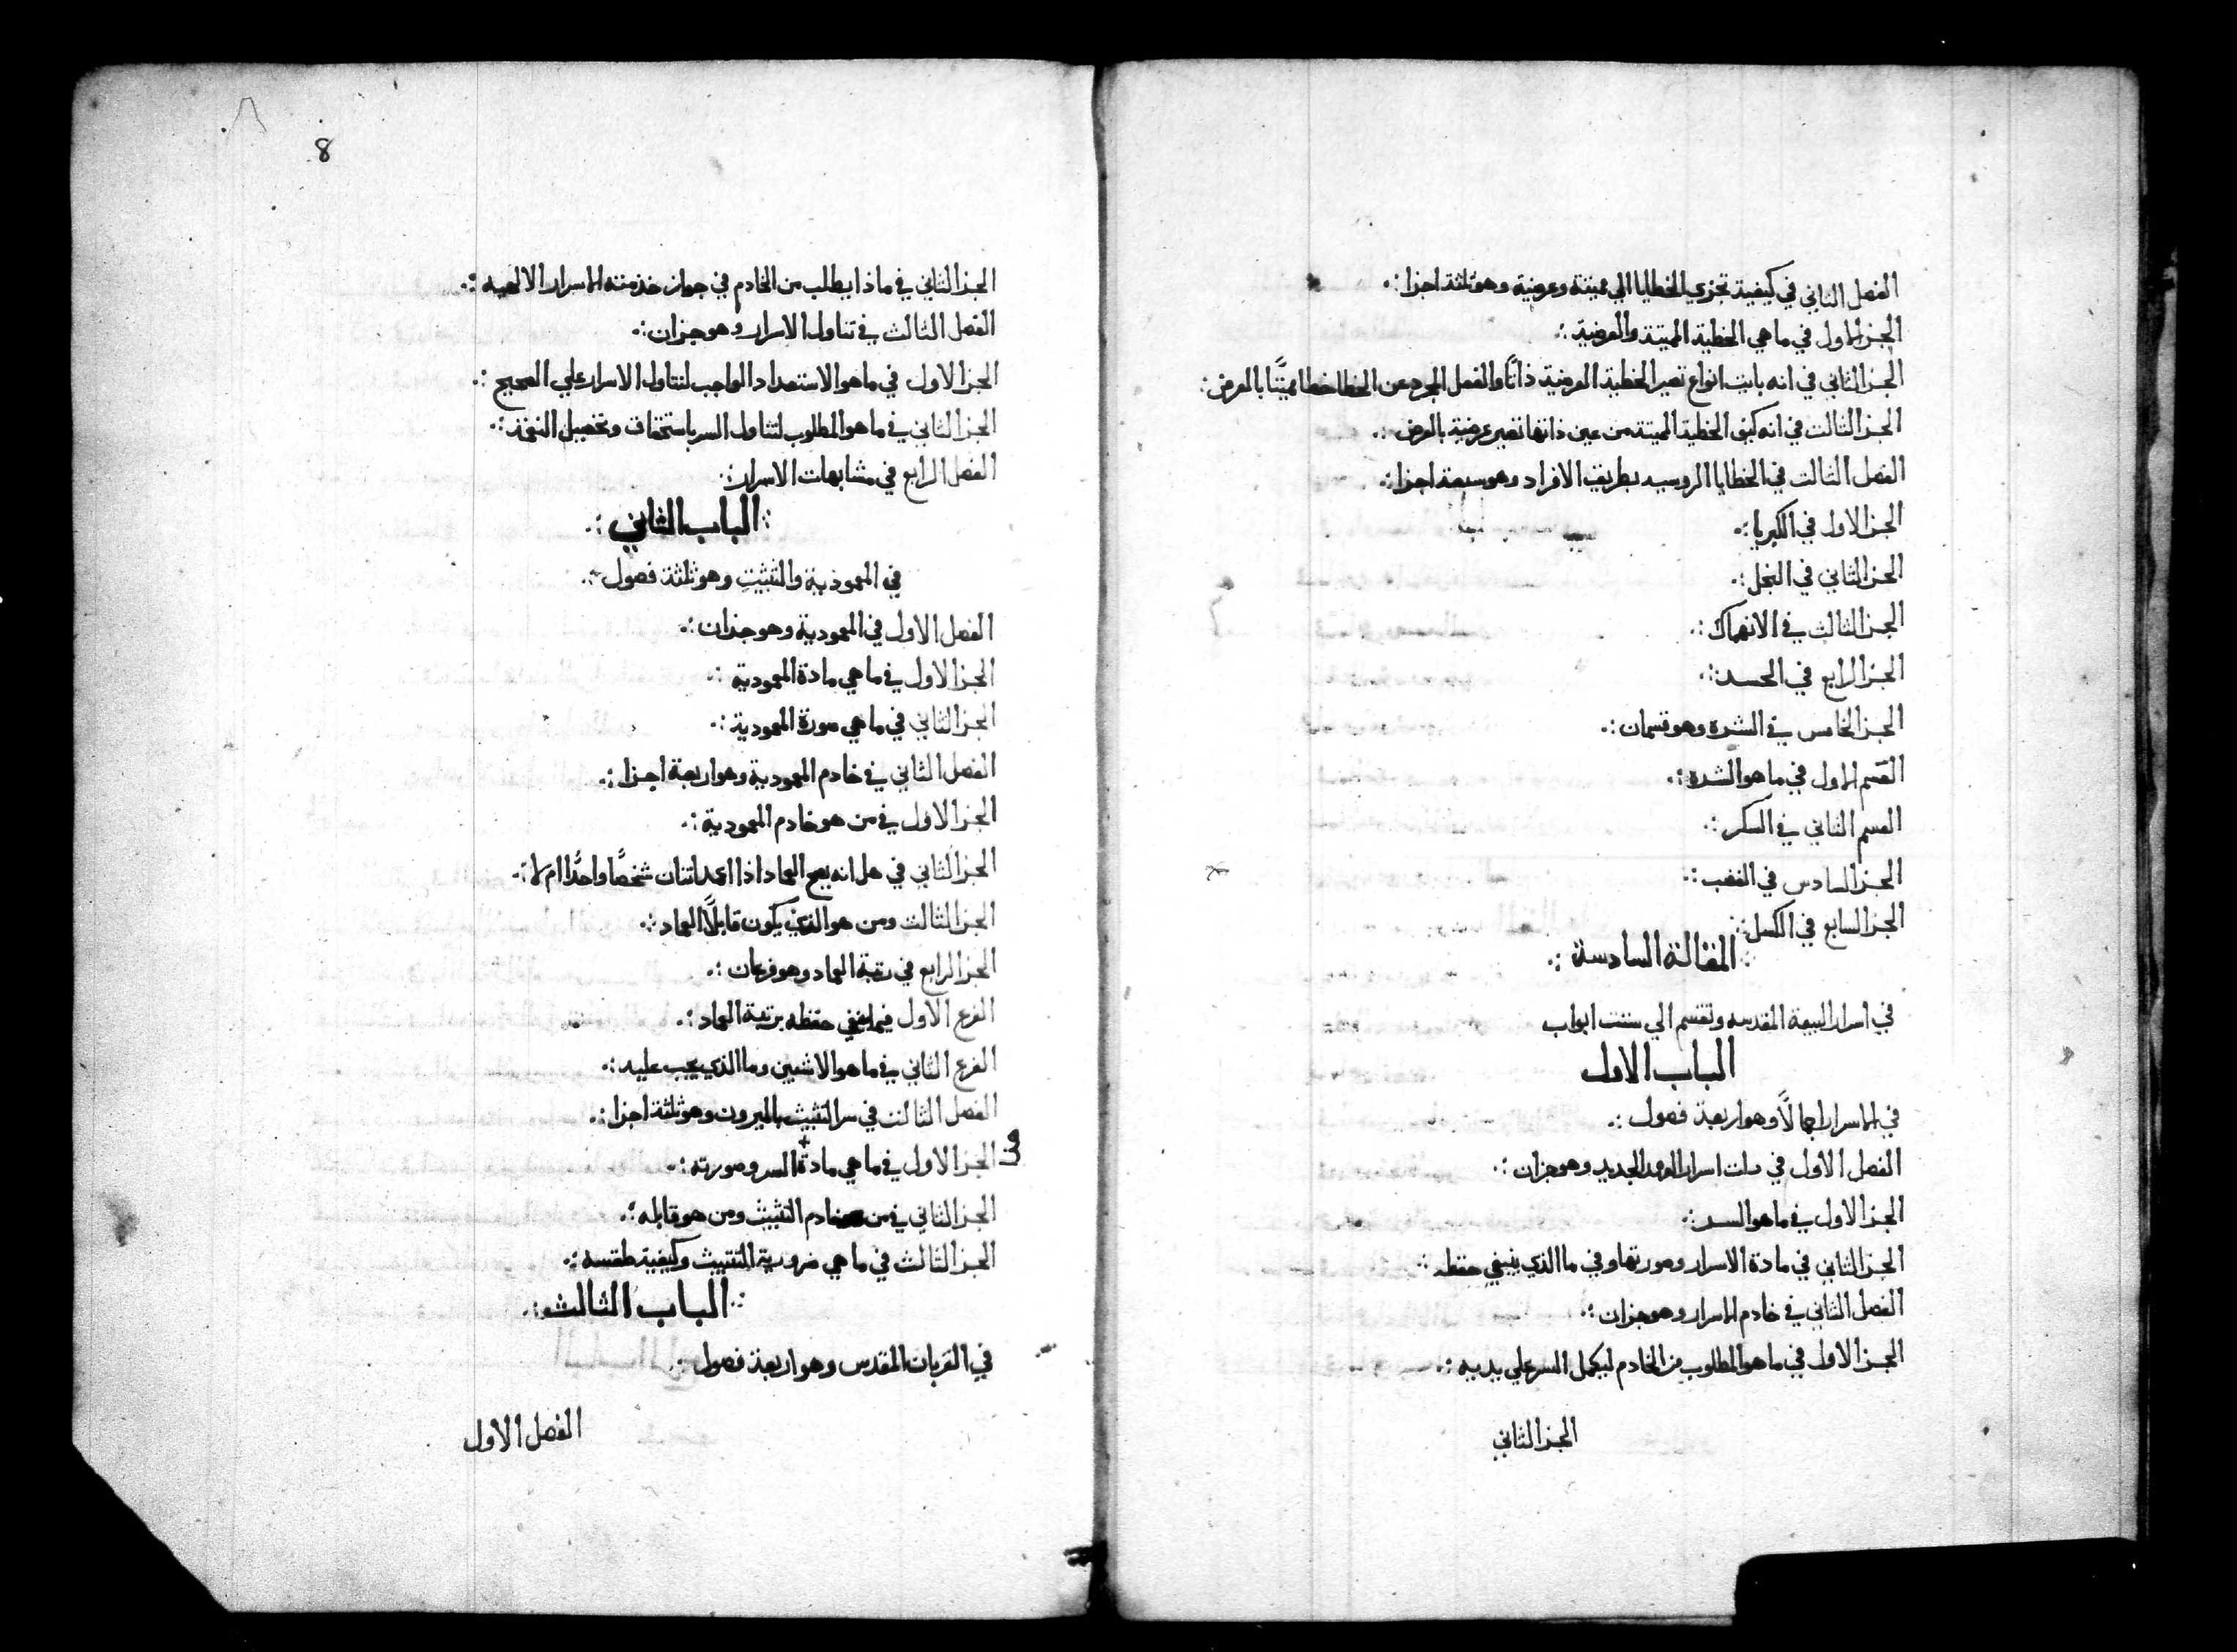 الفصل الثاني في كيفية تجزي الخطايا الي مميتة وعرضية وهو ثلثة اجزا
الجز الاول في ما هي الخطية المميتة والعرضية
الجز الثاني في انه بايت انواع تصير الخطية العرضية ذاتًا والفعل المجرد عن الخطا خطا مميتًا بالعرض
الجز الثالث في انه كيف الخطية المميتة من عين ذاتها تصير عرضية بالعرض
الفصل الثالث في الخطايا الروسيه بطريق الافراد وهو سبعة اجزا
الجز الاول في الكبريا
الجز الثاني في البخل
الجز الثالث في الانهماك
الجز الرابع في الحسد
الجز الخامس في الشره وهو قسمان
القسم الاول في ما هو الشره
القسم الثاني في السكر
الجز السادس في الغضب
الجز السابع في الكسل
المقالة السادسة
في اسرار البيعة المقدسه وتقسم الي ستت ابواب
الباب الاول
في الاسرار اجمالًا وهو اربعة فصول
الفصل الاول في اسرار العهد الجديد وهو جزان
الجز الاول في ما هو السر
الجز الثاني في مادة الاسرار وصورتها وفي ما الذي ينبغي حفظه
الفصل الثاني في خادم الاسرار وهو جزان
الجز الاول في ما هو المطلوب من الخادم ليكمل السر علي يديه
الجز الثاني
8
الجز الثاني في ماذا يطلب من الخادم في جواز خدمته الاسرار الالهيه
الفصل الثالث في تناول الاسرار وهو جزان
الجز الاول في ما هو الاستعداد الواجب لتناول الاسرار علي الصحيح
الجز الثاني في ما هو المطلوب لتناول السر باستحقاق وتحصيل النعمة
الفصل الرابع في مشابهات الاسرار
الباب الثاني
في المعموذية والتثبيت وهو ثلثة فصول
الفصل الاول في المعمودية وهو جزان
الجز الاول في ما هي مادة المعمودية
الجز الثاني في ما هي صورة المعمودية
الفصل الثاني في خادم المعمودية وهو اربعة اجزا
الجز الاول في من هو خادم المعمودية
الجز الثاني في هل انه يصح العماد اذا اعمد اتنان شخصًا واحدًا ام لا
الجز الثالث ومن هو الذي يكون قابلًا العماد
الجز الرابع في رتبة العماد وهو فرعان
الفرع الاول فيما ينبغي حفظه برتبة العماد
الفرع الثاني في ما هو الاشبين وما الذي يجب عليه
الفصل الثالث في سر التثبيث بالميرون وهو ثلثة اجزا
الجز الاول في ما هي مادة السر وصورته
الجز الثاني في من خادم التثبيث ومن هو قابله
الجز الثالث في ما هي ضرورية التثبيث وكيفية طقسه
الباب الثالث
في القربان المقدس وهو اربعة فصول
الفصل الاول